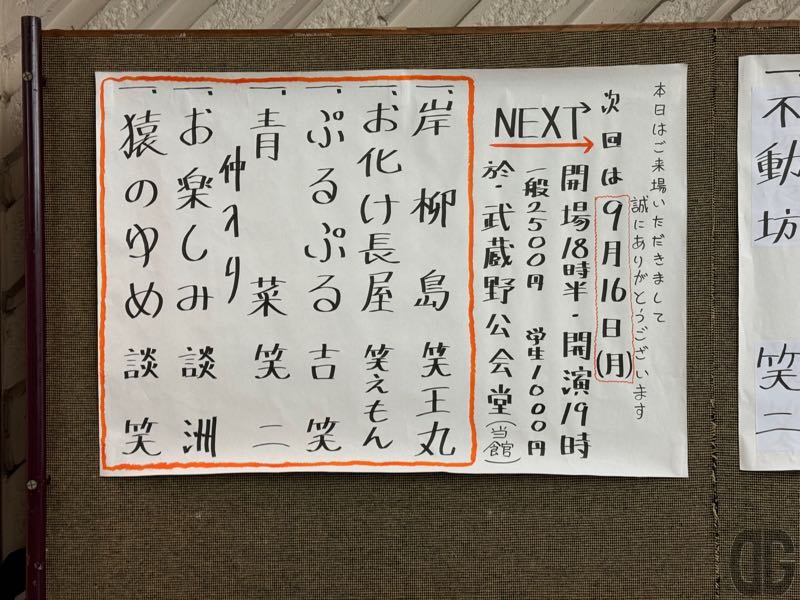 一、不動坊 笑二
本日はご来場いただきまして
誠にありがとうございます
次回は9月16日(月)
開場18時半・開演19時
NEXT
一般2500円 学生1000円
於・武蔵野公会堂(当館)
一、岸柳島 笑王丸
一、お化け長屋 笑えもん
一、ぷるぷる 吉笑
一、青菜 笑二
仲入り
一、お楽しみ 談洲
一、猿のゆめ 談笑
DG